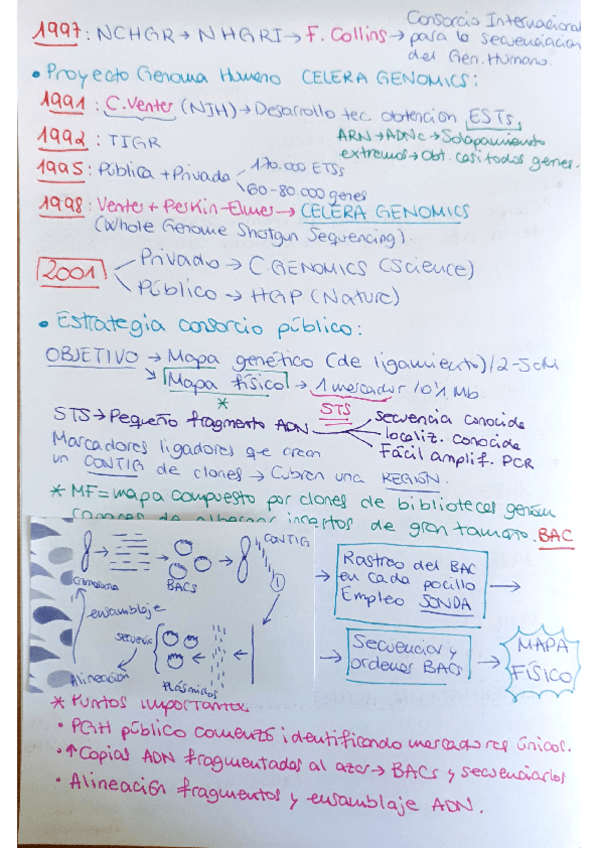 1997: NCHGR → NHGRI → F. Collins → Consorcio Internacional
para la secuenciación
del Gen. Humano.
• Proyecto Genoma Humano CELERA GENOMICS:
1991: C. Venter (NIH) → Desarrollo tec. obtención ESTs,
ARN → ADNc → Solapamiento
extremos → Obt. casi todos genes.
1992: TIGR
1995: Pública + Privada
170.000 ETSs
60-80.000 genes
1998: Venter + Perkin-Elmer → CELERA GENOMICS
(Whole Genome Shotgun Sequencing).
2001
Privado → C. GENOMICS (Science)
Público → HGP (Nature)
• Estrategia consorcio público:
OBJETIVO → Mapa genético (de ligamiento) / 2-5cM
→ Mapa físico → 1 marcador / 0'1 Mb.
*
STS
STS → Pequeño fragmento ADN
secuencia conocida
localiz. conocida
Fácil amplif. PCR
Marcadores ligadores que crean
un CONTIG de clones → Cubren una REGIÓN.
* MF = mapa compuesto por clones de bibliotecas genóm
capaces de albergar insertos de gran tamaño. BAC
CONTIG
BACs
Cromosoma
ensamblaje
secuencia
Alineación
Plásmidos
→ Rastreo del BAC
en cada pocillo
Empleo SONDA →
→ Secuenciar y
ordenar BACs →
MAPA
FÍSICO
* Puntos importantes
• PGH público comenzó identificando marcadores únicos.
• ↑Copias ADN fragmentadas al azar → BACs y secuenciarlos
• Alineación fragmentos y ensamblaje ADN.